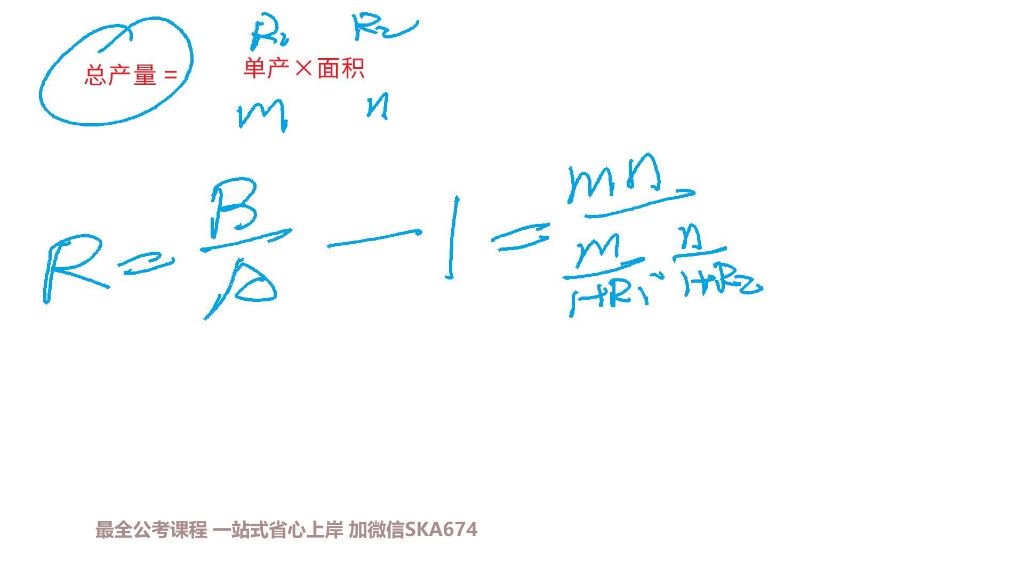 R₁ R₂
总产量 = 单产×面积
m n
R = B/A — 1 = mn/(m/(1+R₁) · n/(1+R₂))
最全公考课程 一站式省心上岸 加微信SKA674